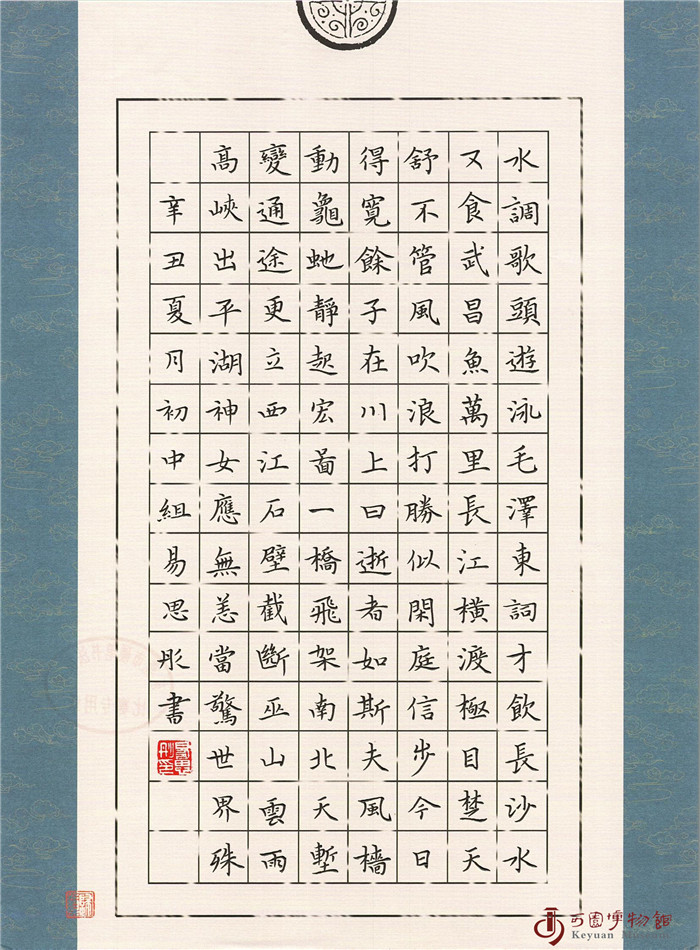 水調歌頭遊泳毛澤東詞才飲長沙水
又食武昌魚萬里長江橫渡極目楚天
舒不管風吹浪打勝似閑庭信步今日
得寬餘子在川上曰逝者如斯夫風檣
動龜虵靜起宏啚一橋飛架南北天塹
變通途更立西江石壁截斷巫山雲雨
高峽出平湖神女應無恙當驚世界殊
辛丑夏月初中組易思彤書
可園博物館
Keyuan Museum